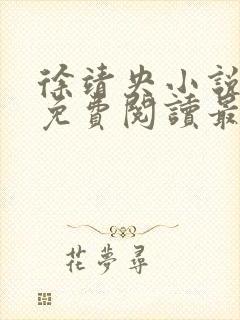 徐靖央小說
免費閱讀最
花夢尋